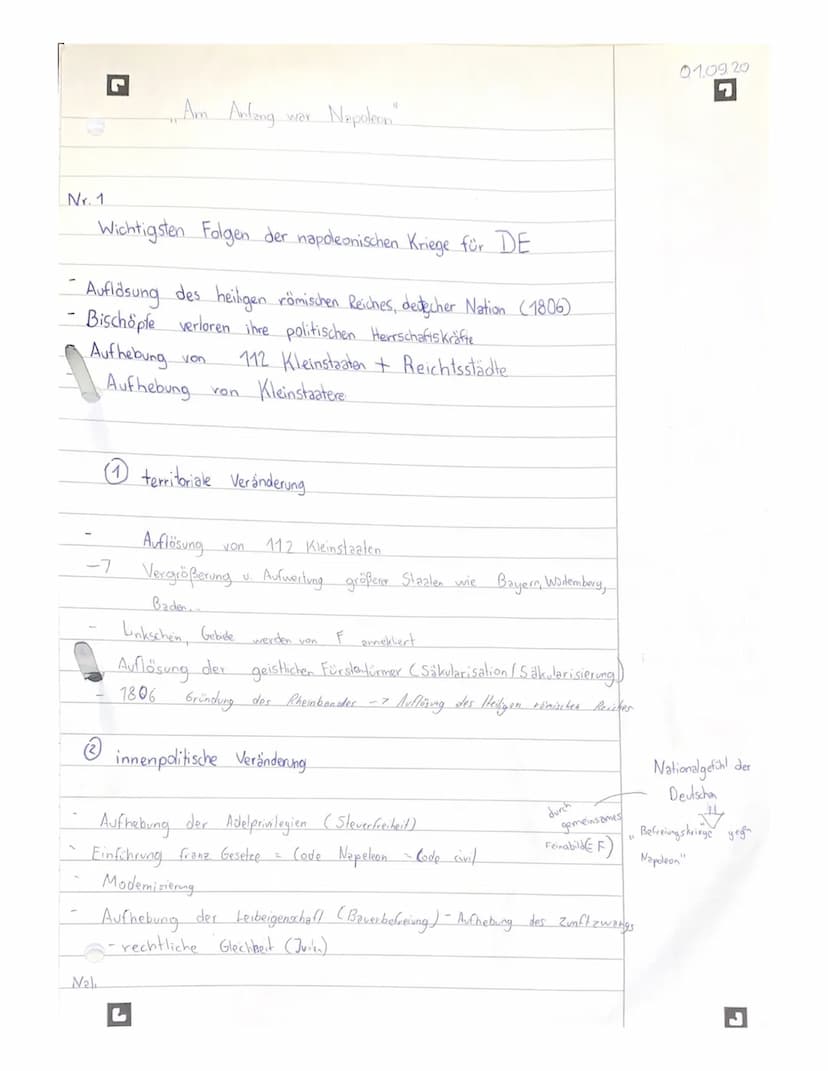 01.09.20
„Am Anfang war Napoleon"
Nr. 1
Wichtigsten Folgen der napoleonischen Kriege für DE
- Auflösung des heiligen römischen Reiches, deutscher Nation (1806)
- Bischöpfe verloren ihre politischen Herrschaftskräfte
Aufhebung von 112 Kleinstaaten + Reichtsstädte
Aufhebung von Kleinstaatere
① territoriale Veränderung
- Auflösung von 112 Kleinstaaten
-> Vergrößerung u. Aufwertung größerer Staaten wie Bayern,
Baden...
- werden von F
Auflösung der geistlichen (Säkularisation / Säkularisierung)
- 1806 Gründung des Rheinbundes -> Auflösung des Heiligen römischen Reiches
② innenpolitische Veränderung
- Aufhebung der Adelprivilegien (Steuerfreiheit)
- Einführung franz Gesetze = Code Napoleon = Code civil
- Modernisierung
- Aufhebung der Leibeigenschaft (Bauerbefreiung) - Aufhebung des Zunftzwangs
- rechtliche (Juden)
Nationalgefühl der
Deutschen
durch
gemeinsames
(= F)
„Befreiungskriege gegen
Napoleon"